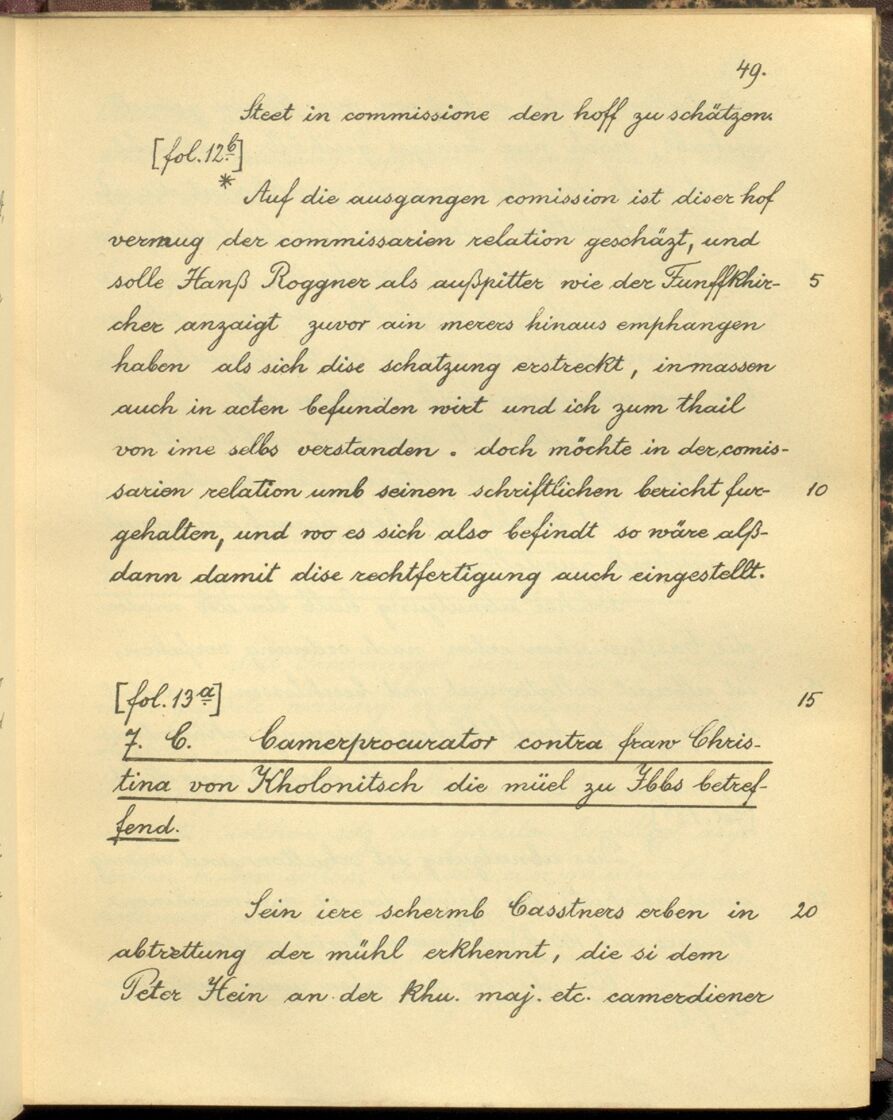 49.
Steet in commissione den hoff zu schätzen.
[fol. 12 b]
* Auf die ausgangen comission ist diser hof
vermug der commissarien relation geschäzt, und
solle Hanß Roggner als außpitter wie der Funffkhir- 5
cher anzaigt zuvor ain merers hinaus emphangen
haben als sich dise schatzung erstreckt, inmassen
auch in acten befunden wirt und ich zum thail
von ime selbs verstanden. doch möchte in der comis-
sarien relation umb seinen schriftlichen bericht fur- 10
gehalten, und wo es sich also befindt so wäre alß-
dann damit dise rechtfertigung auch eingestellt.
[fol. 13 a] 15
7. C. Camerprocurator contra fraw Chris-
tina von Kholonitsch die müel zu Ibbs betref-
fend.
Sein iere schermb Casstners erben in 20
abtrettung der mühl erkhennt, die si dem
Peter Hein an der khu. maj. etc. camerdiener